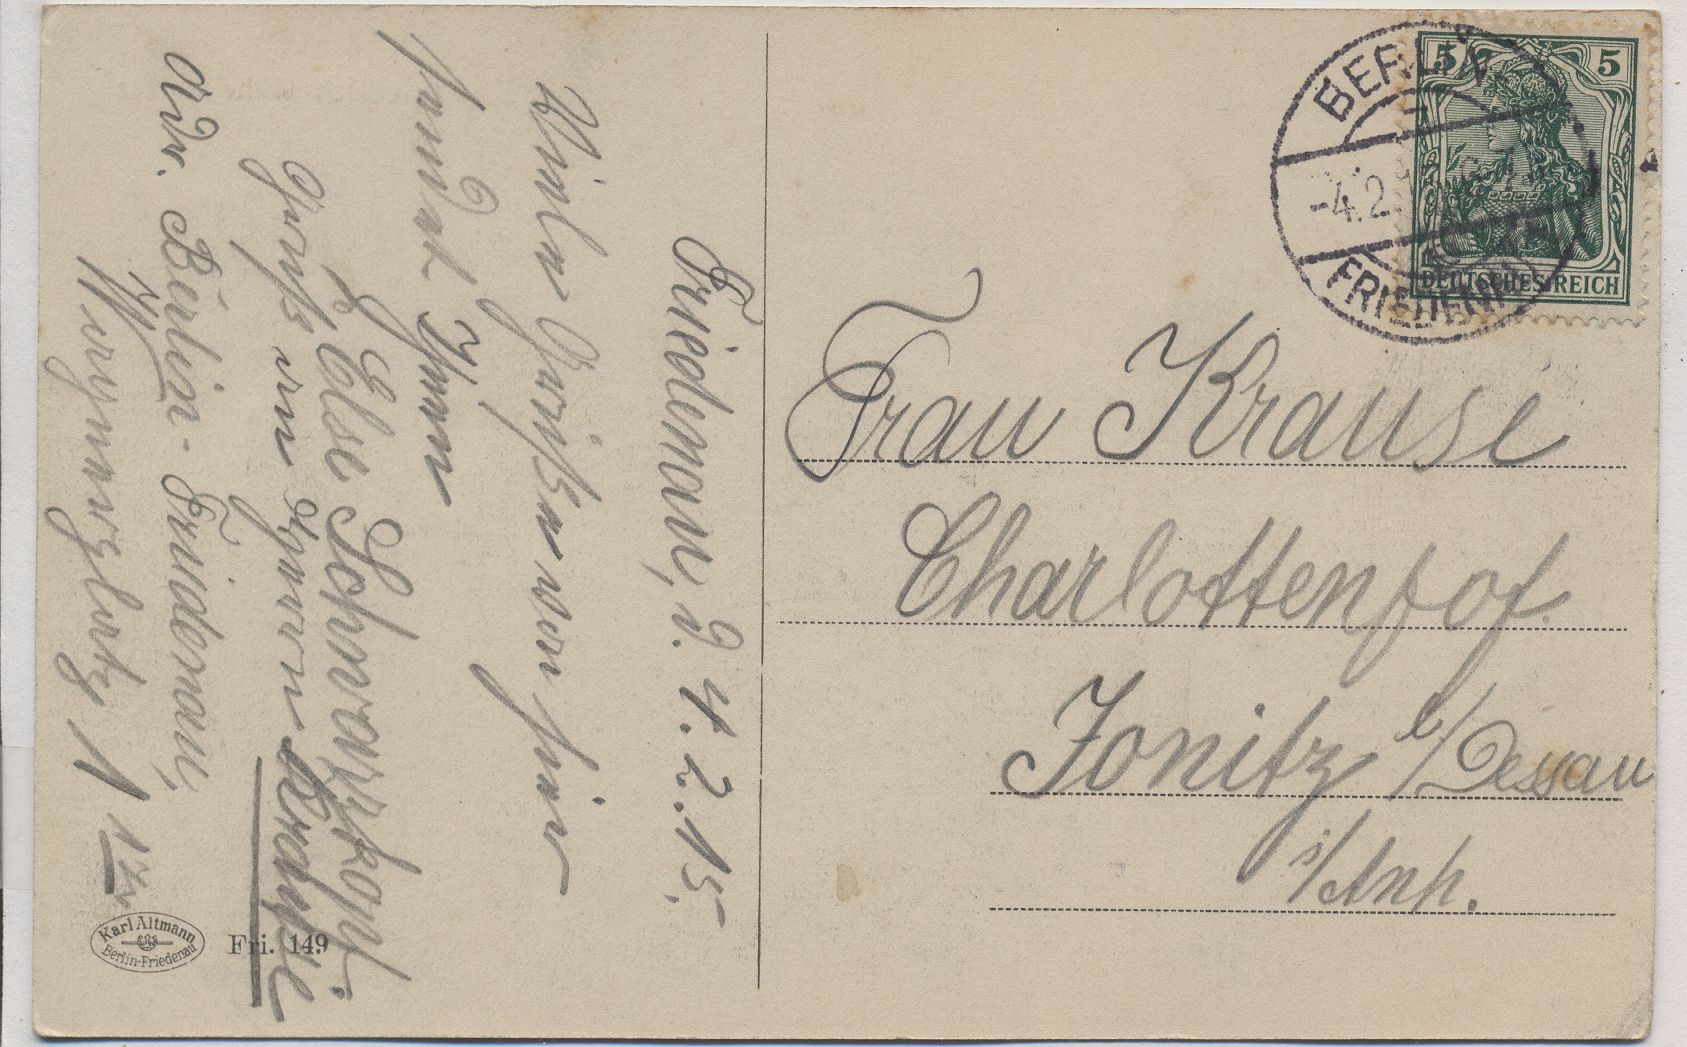 Friedenau, d. 4.2.15.
Viele Grüße von hier
sendet Ihnen
Else Schwarzkopf.
Gruß an Herrn Krause
Adr. Berlin-Friedenau,
Wagnerplatz 1
Frau Krause
Charlottenhof.
Jonitz b/Dessau
i/Anh.
BERLIN
-4.2.
FRIEDENAU
5 5
DEUTSCHES REICH
Karl Altmann
Berlin-Friedenau
Fri. 149